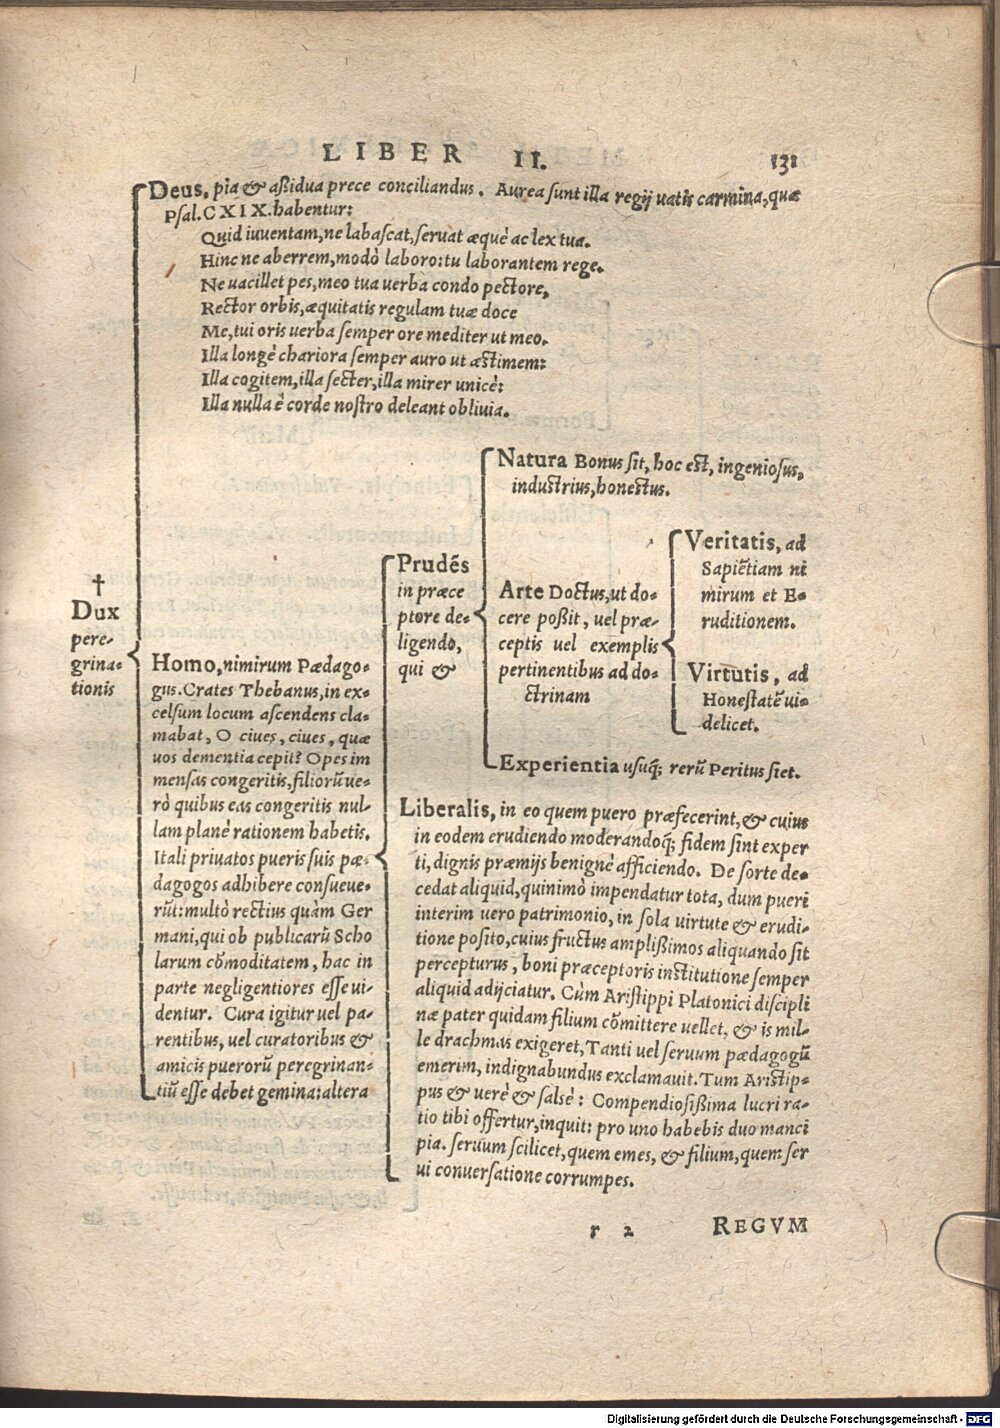 LIBER II. 131
Deus, pia & aßidua prece conciliandus. Aurea sunt illa regij uatis carmina, quæ
Psal. CXIX. habentur:
Quid iuuentam, ne labascat, seruat æquè ac lex tua.
Hinc ne aberrem, modò laboro: tu laborantem rege.
Ne uacillet pes, meo tua uerba condo pectore,
Rector orbis, æquitatis regulam tuæ doce
Me, tui oris uerba semper ore mediter ut meo.
Illa longè chariora semper auro ut æstimem:
Illa cogitem, illa secter, illa mirer unicè:
Illa nulla è corde nostro deleant obliuia.
†
Dux
pere-
grina-
tionis
Homo, nimirum Pædago-
gus. Crates Thebanus, in ex-
celsum locum ascendens cla-
mabat, O ciues, ciues, quæ
uos dementia cepit? Opes im
mensas congeritis, filiorũ ue-
rò quibus eas congeritis nul-
lam planè rationem habetis.
Itali priuatos pueris suis pæ-
dagogos adhibere consueue-
rũt: multò rectius quàm Ger
mani, qui ob publicarũ Scho
larum cõmoditatem, hac in
parte negligentiores esse ui-
dentur. Cura igitur uel pa-
rentibus, uel curatoribus &
amicis puerorũ peregrinan-
tiũ esse debet gemina: altera
Prudẽs
in præce
ptore de-
ligendo,
qui &
Natura Bonus sit, hoc est, ingeniosus,
industrius, honestus.
Arte Doctus, ut do-
cere poßit, uel præ-
ceptis uel exemplis
pertinentibus ad do-
ctrinam
Veritatis, ad
Sapiẽtiam ni
mirum et E-
ruditionem.
Virtutis, ad
Honestatẽ ui-
delicet.
Experientia usuq; rerũ Peritus siet.
Liberalis, in eo quem puero præfecerint, & cuius
in eodem erudiendo moderandoq; fidem sint exper
ti, dignis præmijs benignè afficiendo. De sorte de-
cedat aliquid, quinimò impendatur tota, dum pueri
interim uero patrimonio, in sola uirtute & erudi-
tione posito, cuius fructus amplißimos aliquando sit
percepturus, boni præceptoris institutione semper
aliquid adijciatur. Cùm Aristippi Platonici discipli
næ pater quidam filium cõmittere uellet, & is mil-
le drachmas exigeret, Tanti uel seruum pædagogũ
emerim, indignabundus exclamauit. Tum Aristip-
pus & uerè & salsè: Compendiosißima lucri ra-
tio tibi offertur, inquit: pro uno habebis duo manci
pia. seruum scilicet, quem emes, & filium, quem ser
ui conuersatione corrumpes.
r 2 REGVM
Digitalisierung gefördert durch die Deutsche Forschungsgemeinschaft - DFG